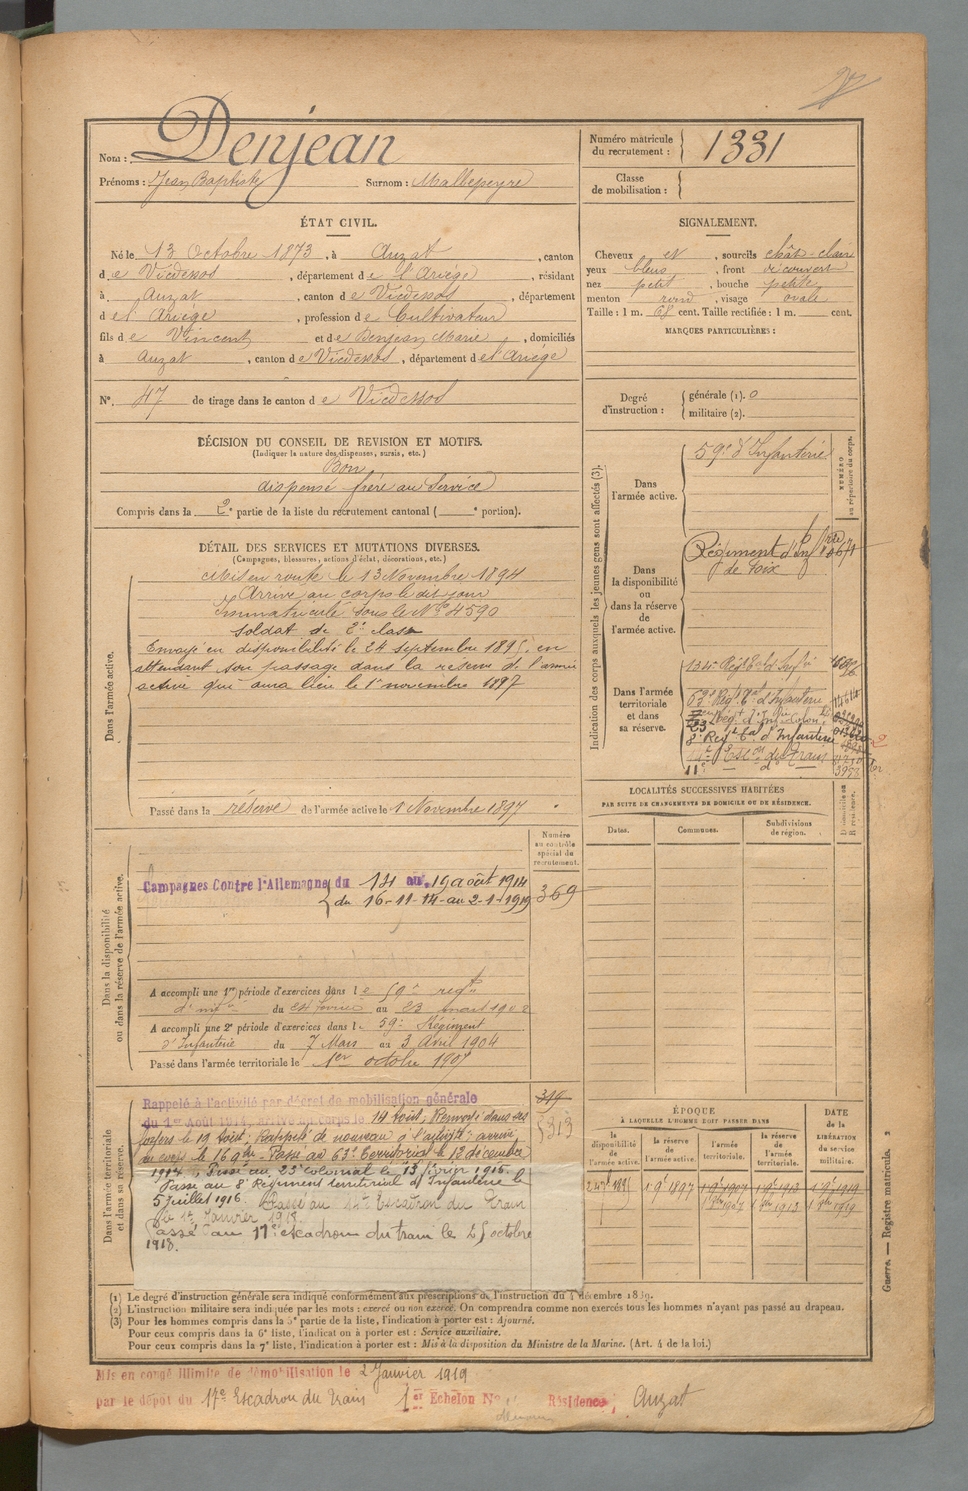 Nom : Denjean
Prénoms : Jean Baptiste Surnom : Malbepeyre
Numéro matricule du recrutement : 1331
Classe de mobilisation :
ÉTAT CIVIL.
Né le 13 Octobre 1873, à Auzat, canton
de Vicdessos, département de l'Ariège, résidant
à Auzat, canton de Vicdessos, département
de l'Ariège, profession de Cultivateur
fils de Vincent et de Denjean Marie, domiciliés
à Auzat, canton de Vicdessos, département de l'Ariège
N° 47 de tirage dans le canton de Vicdessos
SIGNALEMENT.
Cheveux et, sourcils chât-clair
yeux bleus, front découvert
nez petit, bouche petite
menton rond, visage ovale
Taille : 1 m. 68 cent. Taille rectifiée : 1 m. cent.
MARQUES PARTICULIÈRES :
Degré d'instruction : générale (1). 0
militaire (2).
DÉCISION DU CONSEIL DE REVISION ET MOTIFS.
(Indiquer la nature des dispenses, sursis, etc.)
Bon
dispensé frère au Service
Compris dans la 2e partie de la liste du recrutement cantonal ( e portion).
DÉTAIL DES SERVICES ET MUTATIONS DIVERSES.
(Campagnes, blessures, actions d'éclat, décorations, etc.)
Dans l'armée active.
Mis en route le 13 Novembre 1894
Arrivé au corps le dit jour
Immatriculé sous le N° 4590
Soldat de 2e classe
Envoyé en disponibilité le 24 septembre 1895, en
attendant son passage dans la réserve de l'armée
active qui aura lieu le 1er novembre 1897
Passé dans la réserve de l'armée active le 1 Novembre 1897
Indication des corps auxquels les jeunes gens sont affectés (3).
NUMÉRO au répertoire du corps.
Dans l'armée active.
59e d'Infanterie
Dans la disponibilité ou dans la réserve de l'armée active.
Régiment d'Infrie
de Foix
Dans l'armée territoriale et dans sa réserve.
134e Régt
63e Régt Tal d'Infanterie
23
8e Régt Tal d'Infanterie
Escon du Train
11e
3952
LOCALITÉS SUCCESSIVES HABITÉES
PAR SUITE DE CHANGEMENTS DE DOMICILE OU DE RÉSIDENCE.
Dates. Communes. Subdivisions de région. Domicile ou Résidence.
Dans la disponibilité ou dans la réserve de l'armée active.
Numéro au contrôle spécial du recrutement.
369
Campagnes Contre l'Allemagne du 14 au 19 août 1914
du 16-11-14 au 2-1-1919
A accompli une 1re période d'exercices dans le 59e regt
d'infie du 24 février au 23 mars 1902
A accompli une 2e période d'exercices dans le 59e Régiment
d'Infanterie du 7 Mars au 3 Avril 1904
Passé dans l'armée territoriale le 1er octobre 1907
Dans l'armée territoriale et dans sa réserve.
Rappelé à l'activité par décret de mobilisation générale
du 1er Août 1914, arrivé au corps le 14 Août; Renvoyé dans ses
foyers le 19 Août; Rappelé de nouveau à l'activité; arrivé
au corps le 16 9bre - Passé au 63e Territorial le 12 décembre
1914. Passé au 23e colonial le 13 février 1916.
Passé au 8e Régiment territorial d'Infanterie le
5 juillet 1916. Passé au Escadron du Train
le 1er Janvier 1918.
Passé au 17e escadron du train le 25 octobre
1918.
319
5313
ÉPOQUE À LAQUELLE L'HOMME DOIT PASSER DANS
la disponibilité de l'armée active. la réserve de l'armée active. l'armée territoriale. la réserve de l'armée territoriale.
DATE DE LA LIBÉRATION DU SERVICE militaire.
1 9e 1897 1 9e 1907 1 9e 1913 1 9e 1919
1 8re 1907 1 8re 1913 1 8re 1919
Guerre. — Registre matricule. 2
(1) Le degré d'instruction générale sera indiqué conformément aux prescriptions de l'instruction du décembre 1889.
(2) L'instruction militaire sera indiquée par les mots : exercé ou non exercé. On comprendra comme non exercés tous les hommes n'ayant pas passé au drapeau.
(3) Pour les hommes compris dans la 5e partie de la liste, l'indication à porter est : Ajourné.
Pour ceux compris dans la 6e liste, l'indication à porter est : Service auxiliaire.
Pour ceux compris dans la 7e liste, l'indication à porter est : Mis à la disposition du Ministre de la Marine. (Art. 4 de la loi.)
Mis en congé illimité de démobilisation le 2 Janvier 1919
par le dépôt du 17e Escadron du Train 1er Échelon N° Résidence Auzat